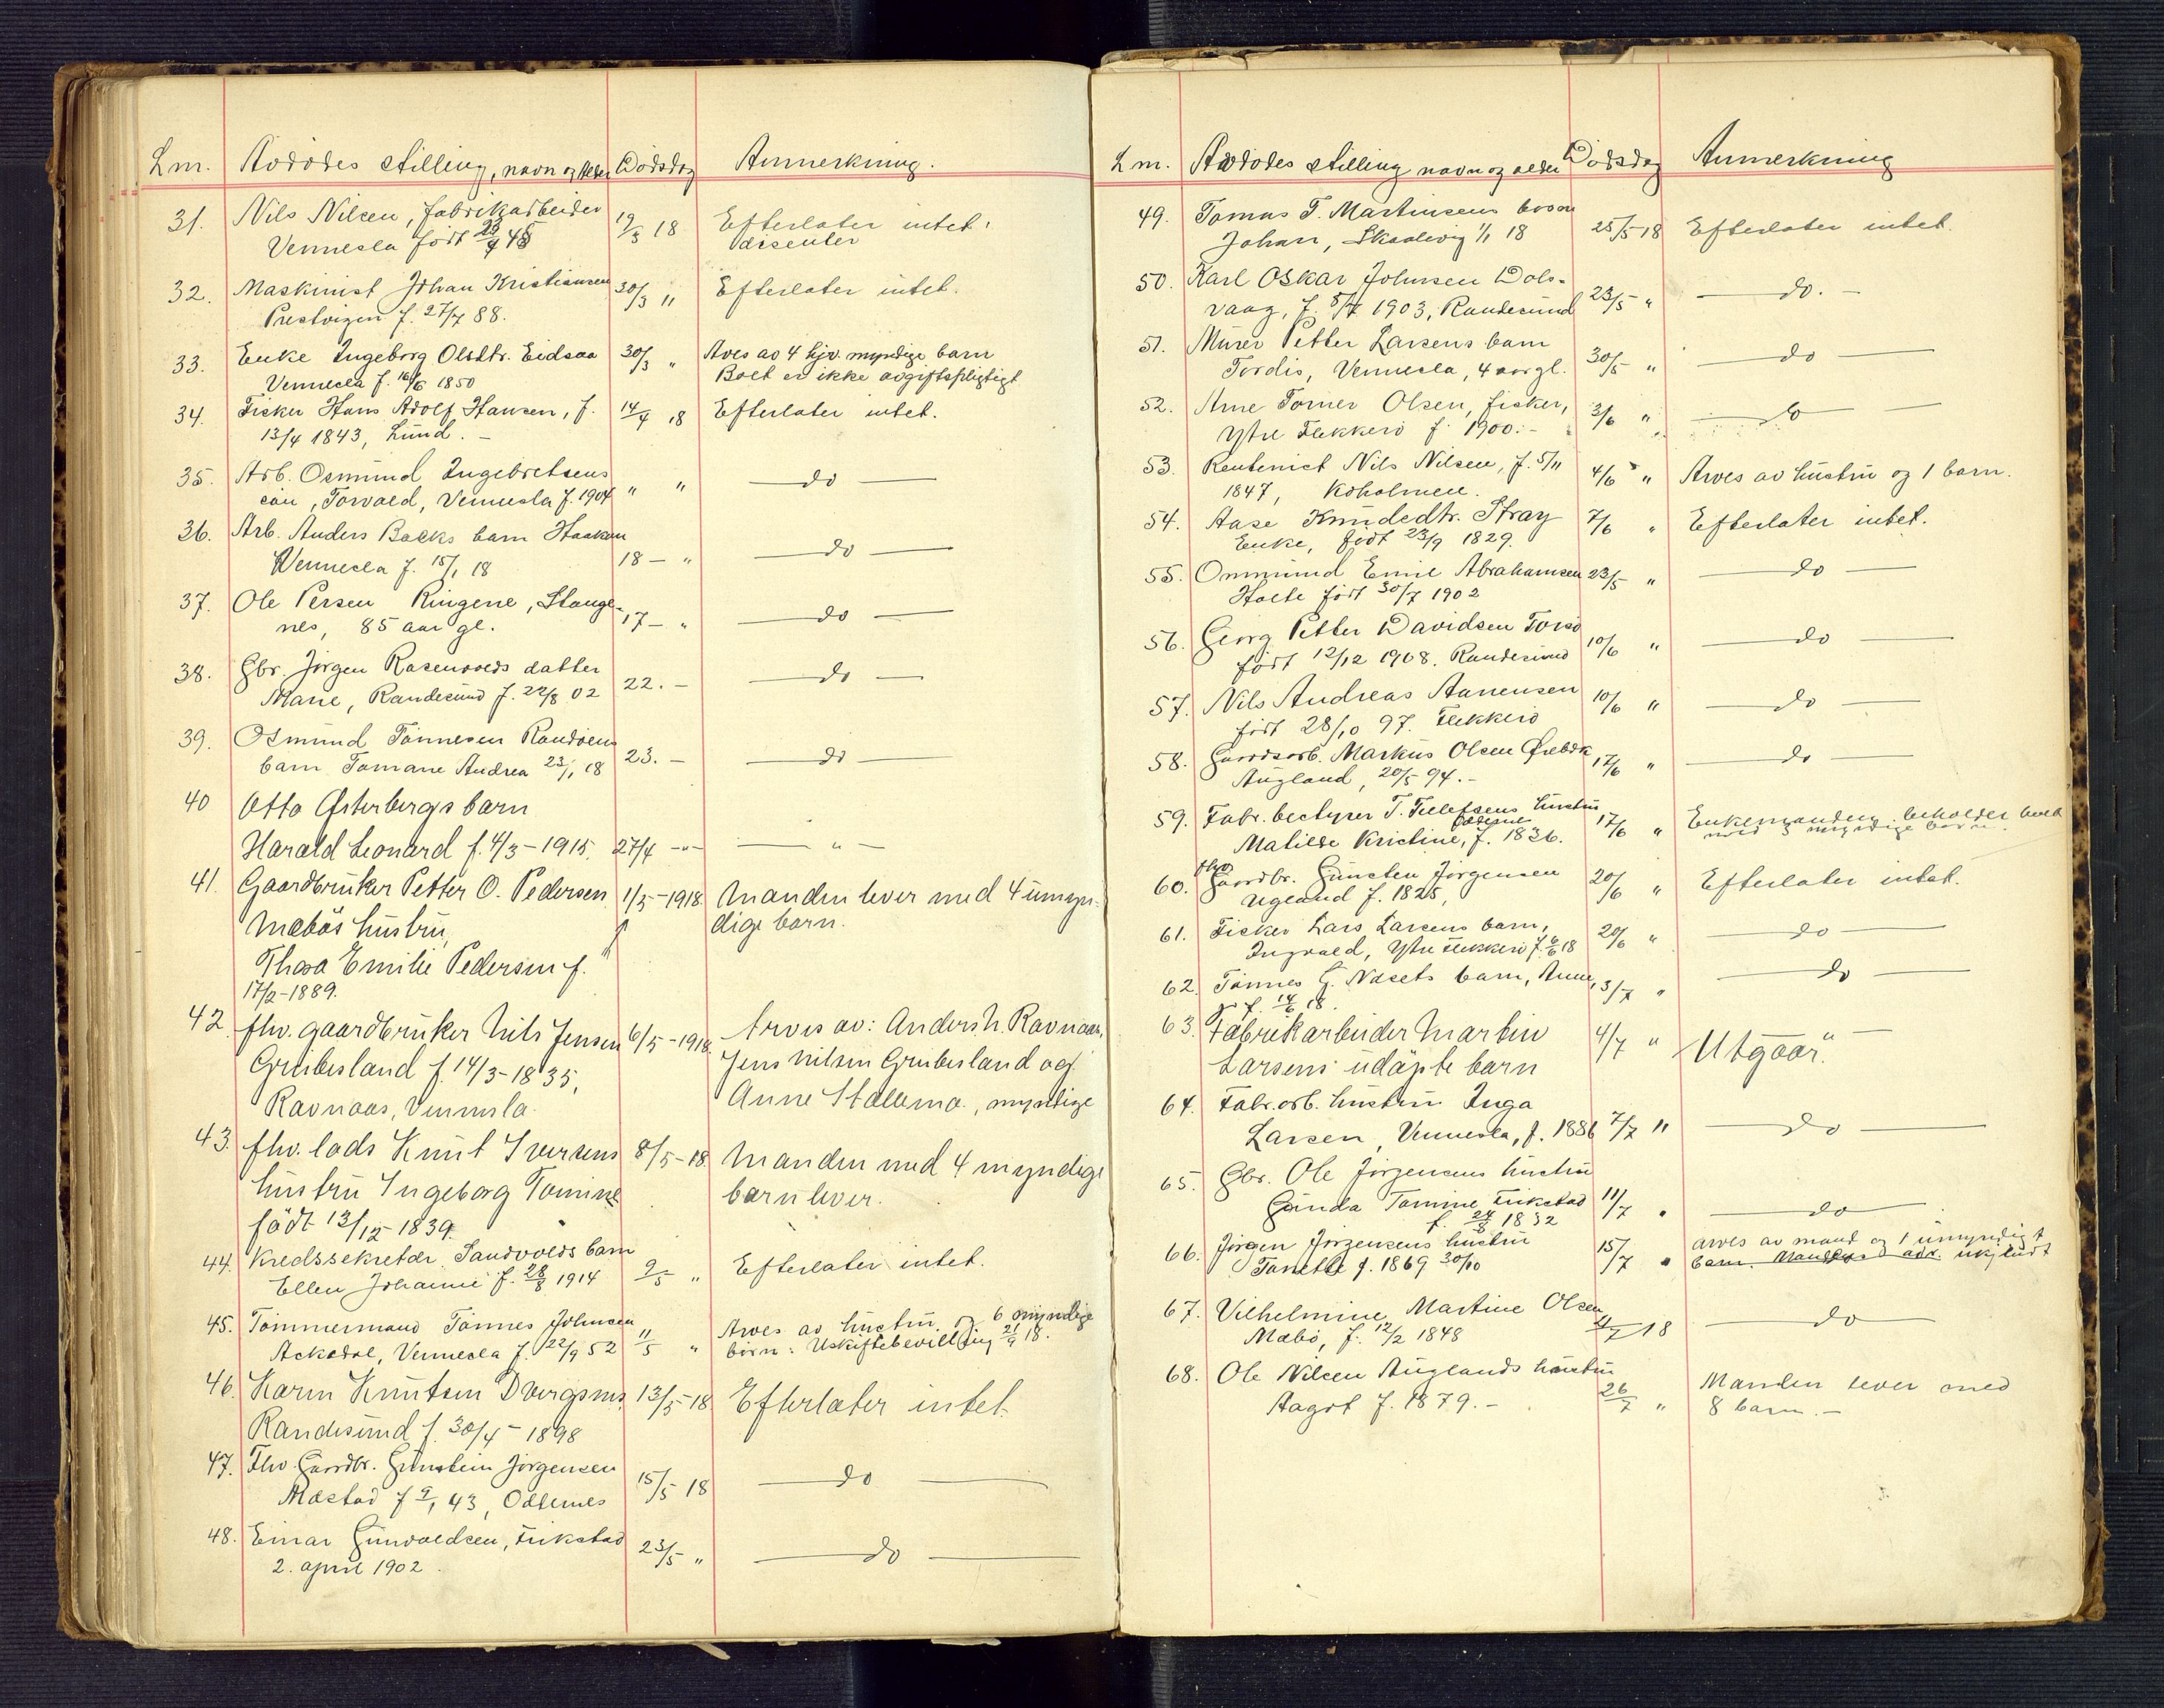 Lnr. Avdødes stilling, navn og alder Dødsdag Anmerkning.
31. Nils Nilsen, fabrikarbeider 19/3 18 Efterlater intet.
Vennesla født 23/9 48 disenter
32. Maskinist Johan Kristiansen 30/3 " Efterlater intet.
Prestvigen f. 27/7 88.
33. Enke Ingeborg Olsdtr. Eidsaa 30/3 " Arves av 4 hjv. myndige barn
Vennesla f. 16/6 1850 Boet er ikke avgiftspligtigt
34. Fisker Hans Adolf Hansen, f. 14/4 18 Efterlater intet.
13/4 1843, Lund. –
35. Arb. Osmund Ingebretsens " " — do —
søn, Torvald, Vennesla f. 1904
36. Arb. Anders Bakks barn Haakon
Vennesla f. 15/1 18 18 – " — do —
37. Ole Persen Ringene, Stange- 17 – " — do —
nes, 85 aar gl.
38. Gbr. Jørgen Rosenvolds datter 22. – — do —
Marie, Randesund f. 22/8 02
39. Osmund Tønnesen Randøens 23. – — do —
barn Tomane Andrea 23/1 18
40 Otto Østerbergs barn
Harald Leonard f. 4/3 – 1915. 27/4 – " – — " —
41. Gaardbruker Petter O. Pedersen 1/5 – 1918. Manden lever med 4 umyn-
Mæbøs hustru, dige barn.
Thora Emilie Pedersen f.
17/2 – 1889.
42. fhv. gaardbruker Nils Jensen 6/5 – 1918. Arves av: Anders N. Ravnaas,
Grubesland f. 14/3 – 1835, Jens Nilsen Grubesland og
Ravnaas, Vennesla. Anne Stallemo, myndige
43. fhv. lods Knut Iversens 8/5 – 18 Manden med 4 myndige
hustru Ingeborg Tomine barn lever.
født 13/12 – 1839.
44. Kredssekretær Sandvolds barn
Ellen Johanne f. 28/8 1914 9/5 " Efterlater intet.
45. Tømmermand Tønnes Johnsen 11/5 " Arves av hustru og 6 myndige
Askedal, Vennesla f. 22/9 52 børn. Uskiftebevilling 21/9 18.
46. Karen Knutsen Dvergsnes 13/5 – 18 Efterlater intet.
Randesund f. 30/4 – 1898
47. Fhv. Gaardbr. Gunstein Jørgensen 15/5 18 — do —
Mæstad f 9/1 43, Oddernes
48. Einar Gunvaldsen, Frikstad 23/5 " — do —
2. april 1902.
Lnr. Avdødes stilling navn og alder Dødsdag Anmerkning
49. Tomas T. Martinsens barn
Johan, Skaalevig 1/1 18 25/5 18 Efterlater intet.
50. Karl Oskar Johnsen Dols- 23/5 – " — do. —
vaag, f. 5/7 1903, Randesund
51. Murer Petter Larsens barn 30/5 " — do —
Tordis, Vennesla, 4 aar gl.
52. Arne Torner Olsen, fisker, 3/6 " — do —
Ytre Flekkerø f. 1900. –
53. Rentenist Nils Nilsen, f. 5/11 4/6 " Arves av hustru og 1 barn.
1847, Koholmen.
54. Aase Knudsdtr. Stray 7/6 " Efterlater intet.
Enke, født 23/9 1829.
55. Ommund Emil Abrahamsen 23/5 " — do —
Holte født 30/7 1902
56. Georg Petter Davidsen Torsø 10/6 " — do —
født 12/12 1908. Randesund
57. Nils Andreas Aanensen 10/6 " — do —
født 28/10 97. Flekkerø
58. Gaardsarb. Markus Olsen Øvebøk 17/6 " — do —
Augland, 20/5 94. –
59. Fabr. bestyrer T. Tellefsens hustru 17/6 " Enkemanden beholder boet
Matilde Kristine, f. 1836. med 3 myndige børn.
60. fhv. Gaardbr. Gunsten Jørgensen 20/6 " Efterlater intet.
Ugland f. 1825,
61. Fisker Lars Larsens barn, 20/6 " — do —
Ingvald, Ytre Flekkerø f. 6/6 18
62. Tønnes G. Næsets barn, Anne, 3/7 " — do —
f. 14/6 18.
63. Fabrikarbeider Martin 4/7 " Utgaar". —
Larsens udøpte barn
64. Fabr. arb. hustru Inga
Larsen, Vennesla, f. 1886 7/7 " — do —
65. Gbr. Ole Jørgensens hustru
Gunda Tomine Frikstad 11/7 " — do —
f. 24/8 1832
66. Jørgen Jørgensens hustru 15/7 " arves av mand og 1 umyndigt
Tanette f. 1869 30/10 barn. ukjendt
67. Vilhelmine Martine Olsen
Mæbø, f. 12/2 1848 21/7 18 — do —
68. Ole Nilsen Auglands hustru 26/7 " Manden lever med
Aagot f. 1879. – 8 barn. –